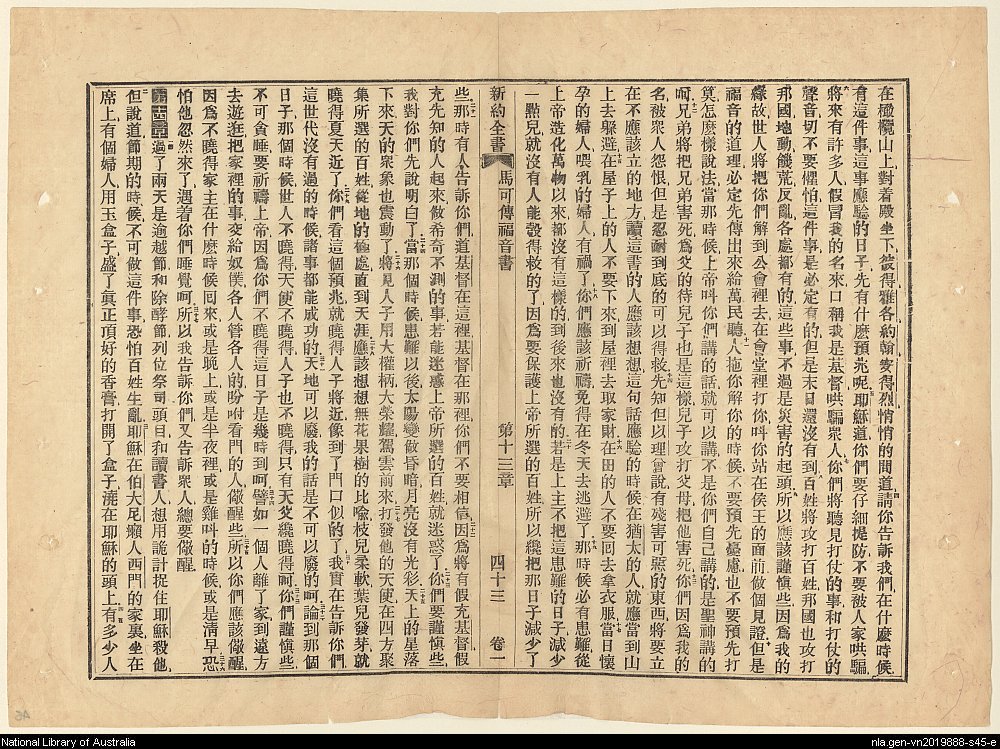 在橄欖山上對着殿坐下彼得雅各約翰安得烈悄悄的問道請你告訴我們在什麼時候
有這件事這事應驗的日子先有什麼預兆呢耶穌道你們要仔細提防不要被人家哄騙
將來有許多人假冒我的名來口稱我是基督哄騙衆人你們將聽見打仗的事和打仗的
聲音切不要懼怕這件事是必定有的但是末日還沒有到百姓將攻打百姓邦國也攻打
邦國地動饑荒反亂各處都有的這些事不過是災害的起頭所以應該謹愼些因爲我的
緣故世人將把你們解到公會裡去在會堂裡打你呌你站在侯王的面前做個見證但是
福音的道理必定先傳出來給萬民聽人拖你解你的時候不要預先憂慮也不要預先打
算怎麼樣說法當那時候上帝呌你們講的話就可以講不是你們自己講的是聖神講的
呵兄弟將把兄弟害死爲父的待兒子也是這樣兒子攻打父母把他害死你們因爲我的
名被衆人怨恨但是忍耐到底的可以得救先知但以理曾說有殘害可惡的東西將要立
在不應該立的地方讀這書的人應該想想這句話應驗的時候在猶太的人就應當到山
上去躲避在屋子上的人不要下來到屋裡去取家財在田的人不要回去拿衣服當日懷
孕的婦人喂乳的婦人有禍了你們應該祈禱免得在冬天去逃避了那時候必有患難從
上帝造化萬物以來都沒有這樣的到後來也沒有的若是上主不把這患難的日子減少
一點兒就沒有人能彀得救的了因爲要保護上帝所選的百姓所以纔把那日子減少了
新約全書 馬可傳福音書 第十三章 四十三 卷一
些那時有人告訴你們道基督在這裡基督在那裡你們不要相信因爲將有假充基督假
充先知的人起來做希奇不測的事若能迷惑上帝所選的百姓就迷惑了你們要謹愼些
我對你們先說明白了當那個時候患難以後太陽變做昏暗月亮沒有光彩天上的星落
下來天的衆象也震動了將見人子用大權柄大榮耀駕雲前來打發他的天使在四方聚
集所選的百姓從地的極處直到天涯應該想想無花果樹的比喻枝兒柔軟葉兒發芽就
曉得夏天近了你們看這個預兆就曉得人子將近像到了門口似的了我實在告訴你們
這世代沒有過的時候諸事都能成功的天地可以廢我的話是不可以廢的呵論到那個
日子那個時候世人不曉得天使不曉得人子也不曉得只有天父纔曉得呵你們謹愼些
不可貪睡要祈禱上帝因爲你們不曉得這日子是幾時到呵譬如一個人離了家到遠方
去遊逛把家裡的事交給奴僕各人管各人的吩咐看門的人儆醒些所以你們應該儆醒
因爲不曉得家主在什麼時候回來或是晚上或是半夜裡或是雞呌的時候或是淸早恐
怕他忽然來了遇着你們睡覺呵所以我告訴你們又告訴衆人總要儆醒
第十四章過了兩天是逾越節和除酵節列位祭司頭目和讀書人想用詭計捉住耶穌殺他
但說道節期的時候不可做這件事恐怕百姓生亂耶穌在伯大尼癩人西門的家裏坐在
席上有個婦人用玉盒子盛了眞正頂好的香膏打開了盒子澆在耶穌的頭上有多少人
National Library of Australia
nla.gen-vn2019888-s45-e